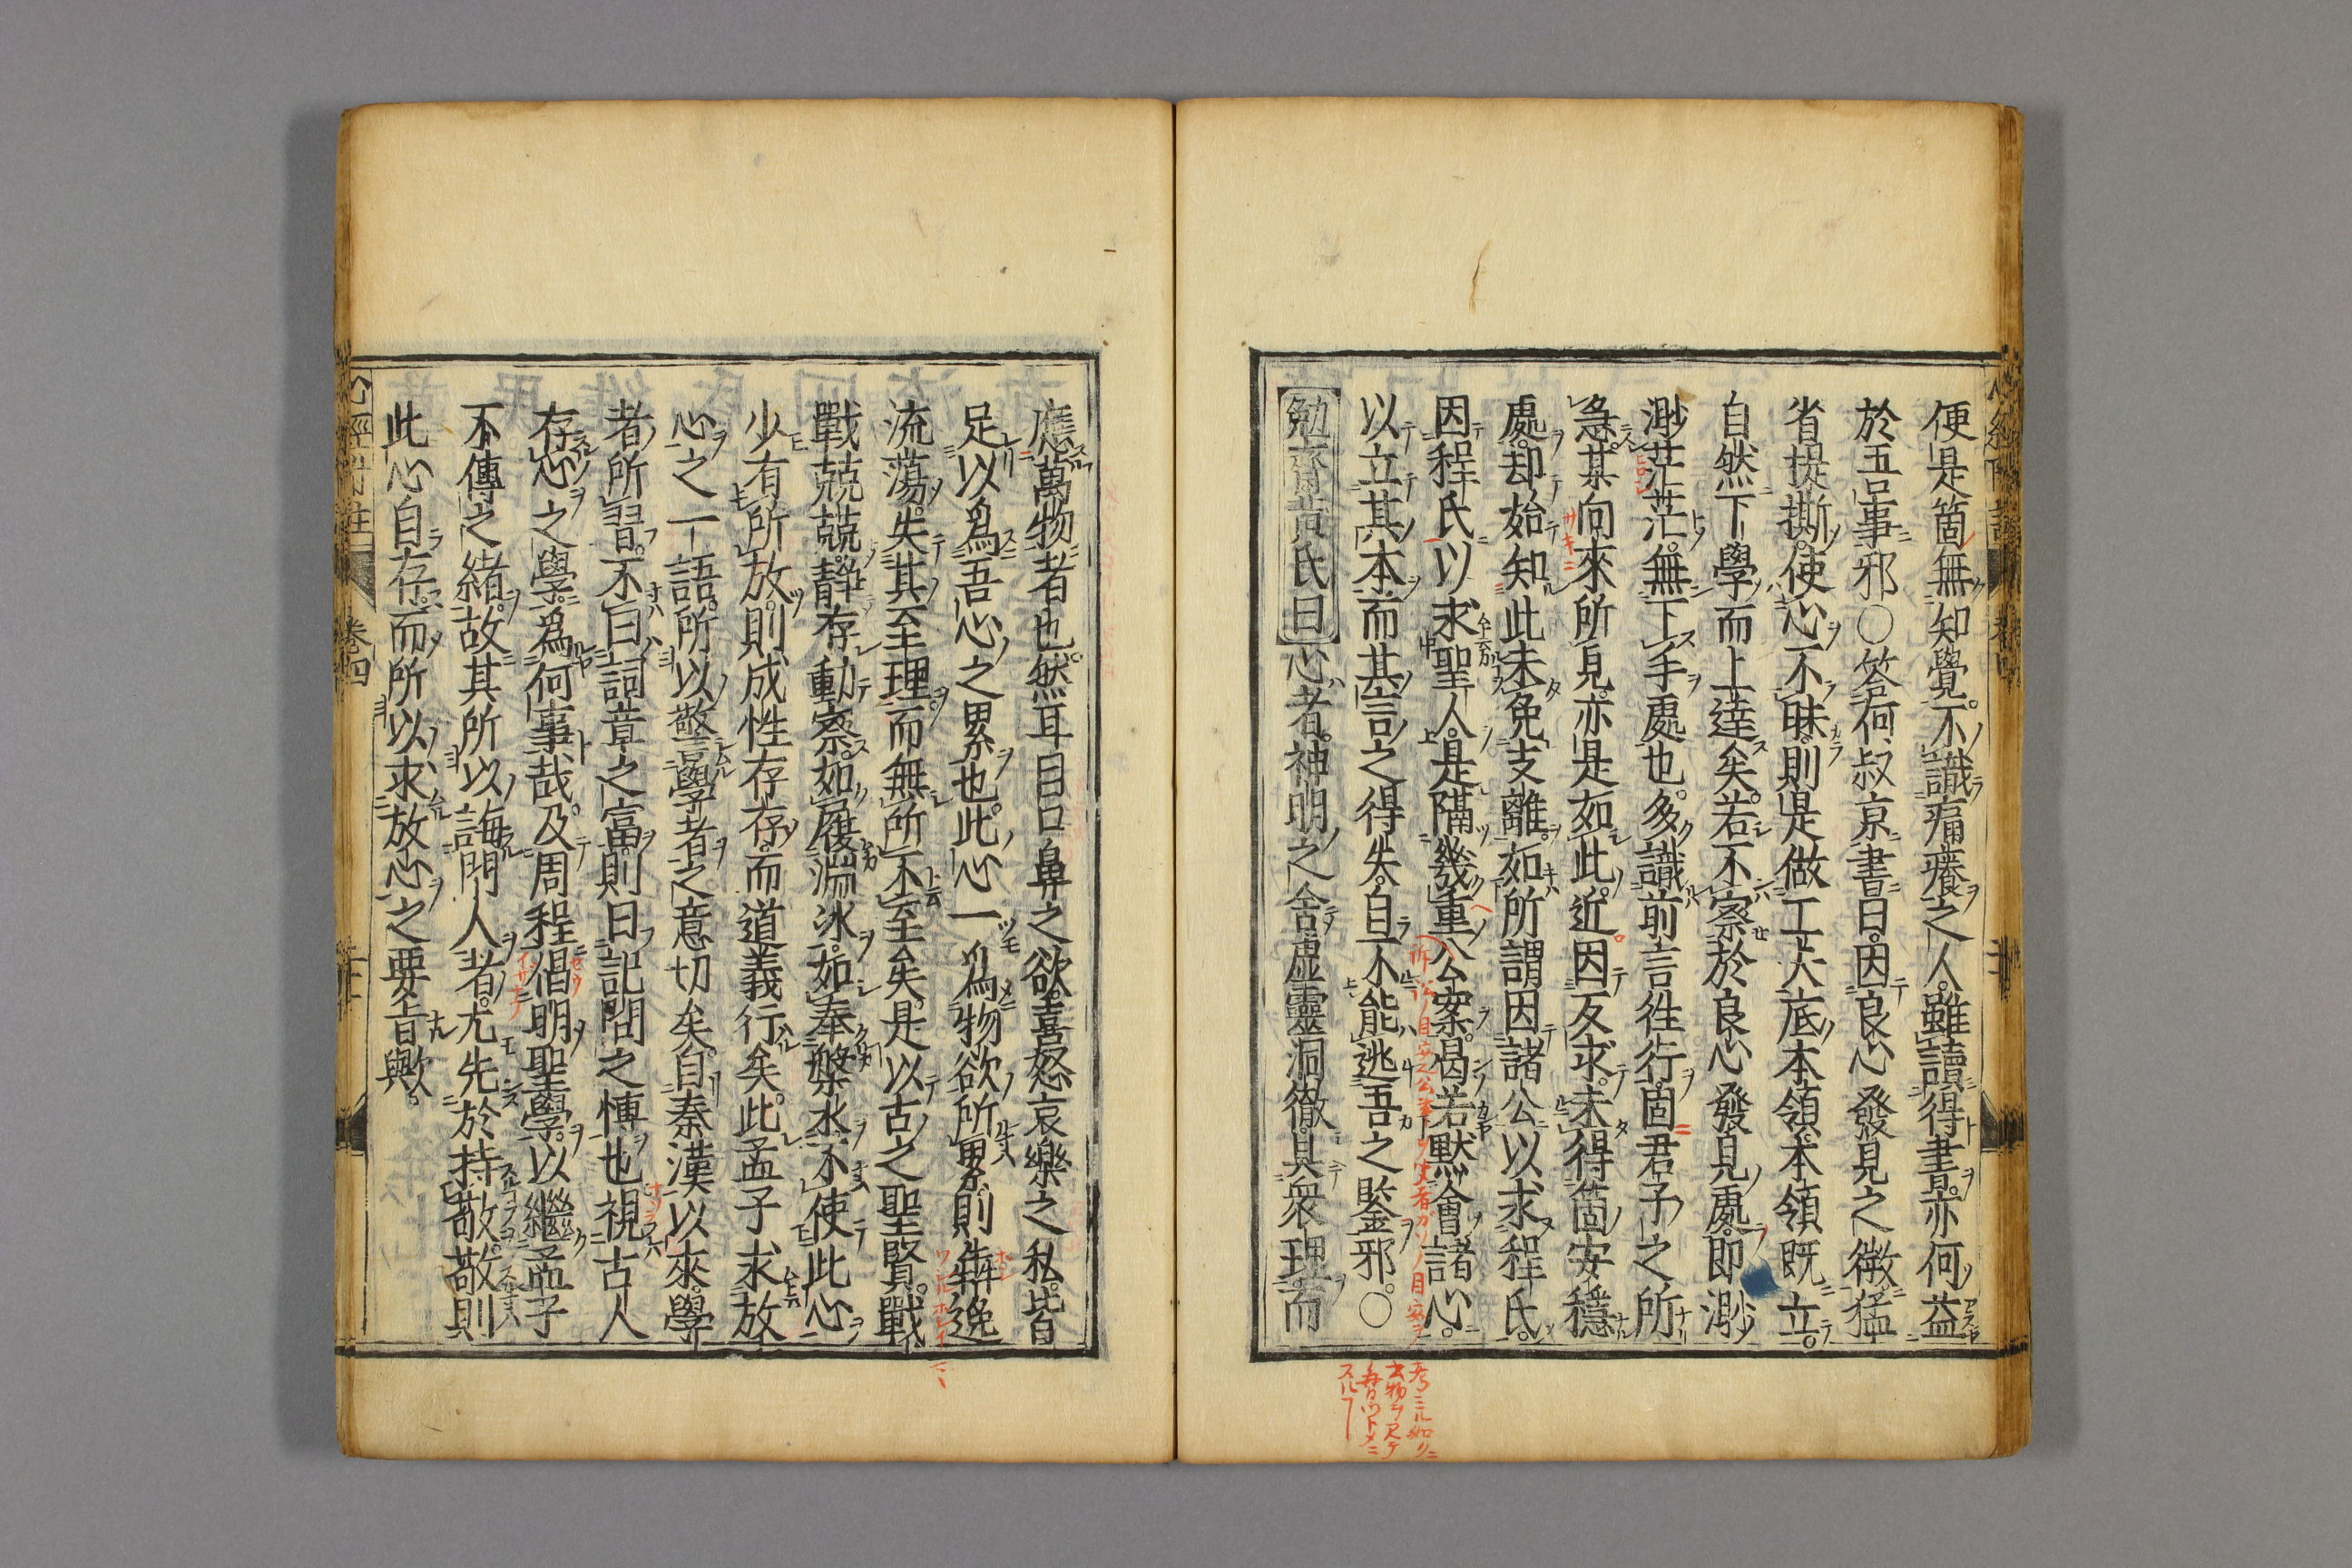 便是箇無知覺不識痛癢之人雖讀得書亦何益
於吾事邪○答何叔京書曰因良心發見之微猛
省提撕使心不昧則是做工夫底本領本領既立
自然下學而上達矣若不察於良心發見處即渺
渺茫茫無下手處也多識前言往行固君子之所
急某向來所見亦是如此近因反求未得箇安穩
處却始知此未免支離如所謂因諸公以求程氏
因程氏以求聖人是隔幾重公案曷若默會諸心
以立其本而其言之得失自不能逃吾之鑒邪○
勉齋黃氏曰心者神明之舍虛靈洞徹具衆理而
應萬物者也然耳目口鼻之欲喜怒哀樂之私皆
足以爲吾心之累也此心一爲物欲所累則奔逸
流蕩失其至理而無所不至矣是以古之聖賢戰
戰兢兢靜存動察如履淵冰如奉槃水不使此心
少有所放則成性存存而道義行矣此孟子求放
心之一語所以警學者之意切矣自秦漢以來學
者所習不曰詞章之富則曰記問之博也視古人
存心之學爲何事哉及周程倡明聖學以繼孟子
不傳之緒故其所以誨門人者尤先於持敬敬則
此心自存而所以求放心之要旨歟
心經附註
卷四